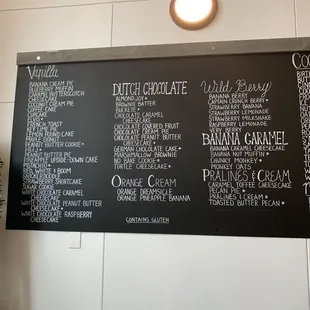 Vanilla
BANANA CREAM PIE
BLUEBERRY MUFFIN
CARAMEL BUTTERSCOTCH
CHEESECAKE
COCONUT CREAM PIE
CRUMB CAKE
CUPCAKE
FRENCH TOAST
KEY LIME PIE
LEMON POUND CAKE
PEANUT BUTTER COOKIE
PEANUT BUTTER PIE
PINEAPPLE UPSIDE-DOWN CAKE
RED WHITE & BOOM
SNICKERDOODLE
STRAWBERRY SHORTCAKE
SUGAR COOKIE
WHITE CHOCOLATE CARAMEL
CHEESECAKE
WHITE CHOCOLATE PEANUT BUTTER
CHEESECAKE
WHITE CHOCOLATE RASPBERRY
CHEESECAKE
DUTCH CHOCOLATE
ALMOND JOY
BROWNIE BATTER
BUCKEYE
CHOCOLATE CARAMEL
CHEESECAKE
CHOCOLATE COVERED FRUIT
CHOCOLATE CREAM PIE
CHOCOLATE PEANUT BUTTER
CHEESECAKE
GERMAN CHOCOLATE CAKE
MARSHMALLOW BROWNIE
NO BAKE COOKIE
TURTLE CHEESECAKE
ORANGE CREAM
ORANGE DREAMSICLE
ORANGE PINEAPPLE BANANA
CONTAINS GLUTEN
Wild Berry
BANANA BERRY
CAPTAIN CRUNCH BERRY
RASPBERRY BROWNIE
RASPBERRY LEMONADE
STRAWBERRY MILKSHAKE
STRAWBERRY LEMONADE
VERY BERRY
BANANA CARAMEL
BANANA CARAMEL CHEESECAKE
BANANA NUT MUFFIN
CHUNKY MONKEY
MONKEY OATS
PRALINES & CREAM
CARAMEL TOFFEE CHEESECAKE
PECAN PIE
PRALINES & CREAM
TOASTED BUTTER PECAN